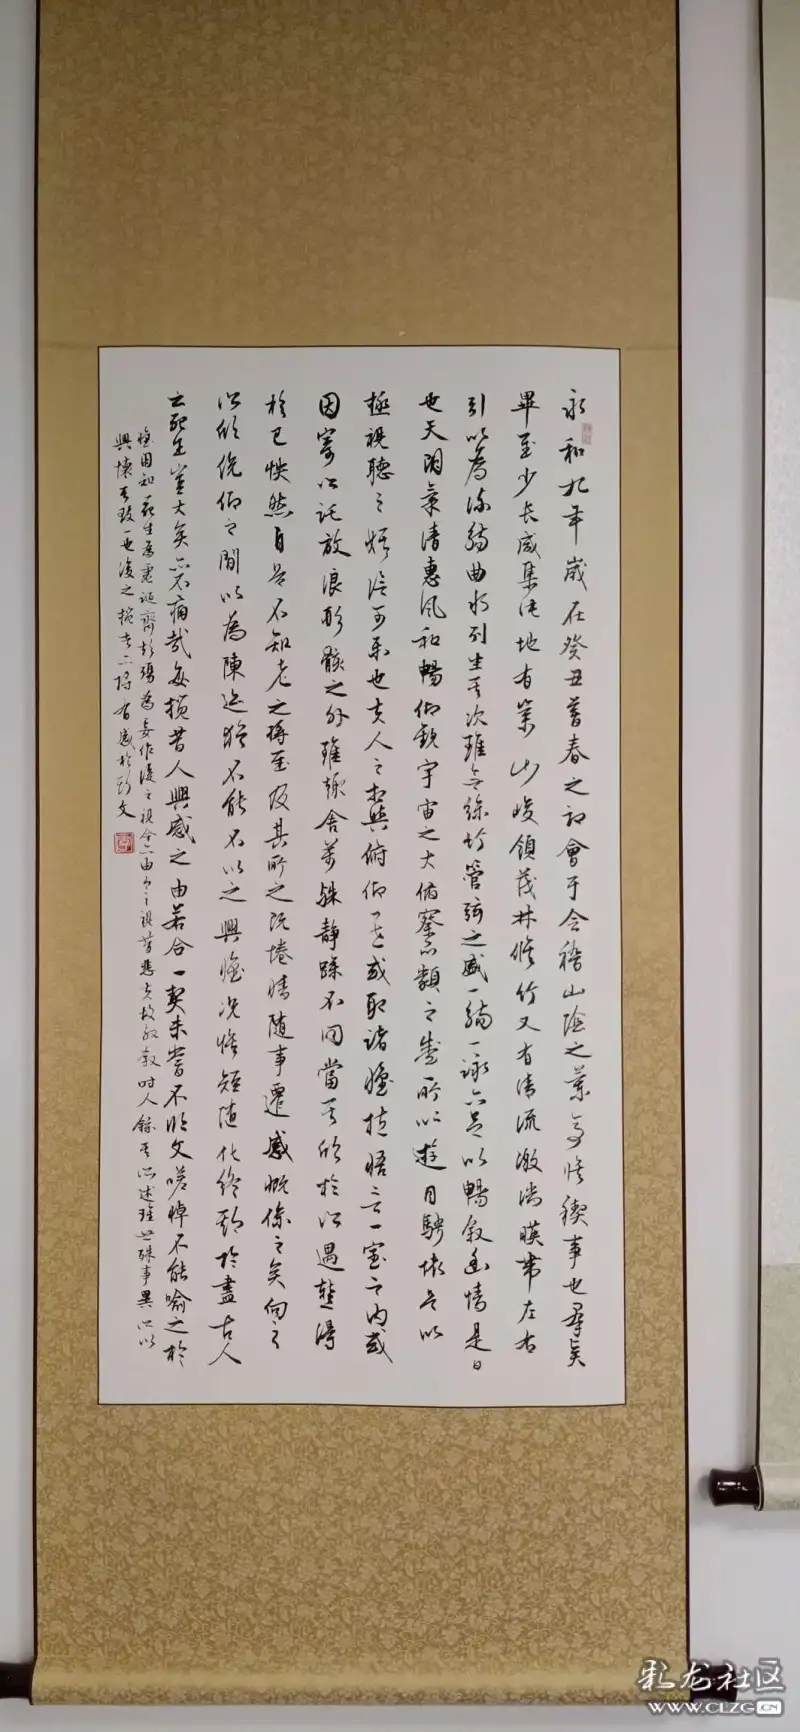 永和九年歲在癸丑暮春之初會于會稽山陰之蘭亭修禊事也羣賢
畢至少長咸集此地有崇山峻領茂林修竹又有清流激湍暎帶左右
引以為流觴曲水列坐其次雖無絲竹管弦之盛一觴一詠亦足以暢敘幽情是日
也天朗氣清惠風和暢仰觀宇宙之大俯察品類之盛所以遊目騁懷足以
極視聽之娛信可樂也夫人之相與俯仰一世或取諸懷抱悟言一室之內或
因寄所託放浪形骸之外雖趣舍萬殊靜躁不同當其欣於所遇蹔得
於己怏然自足不知老之將至及其所之既惓情隨事遷感慨係之矣向之
所欣俛仰之間以為陳迹猶不能不以之興懷況修短隨化終期於盡古人
云死生亦大矣豈不痛哉每攬昔人興感之由若合一契未嘗不臨文嗟悼不能喻之於
懷固知一死生為虛誕齊彭殤為妄作後之視今亦由今之視昔悲夫故列敘時人錄其所述雖世殊事異所以
興懷其致一也後之攬者亦將有感於斯文
彩龙社区
WWW.CLZG.CN